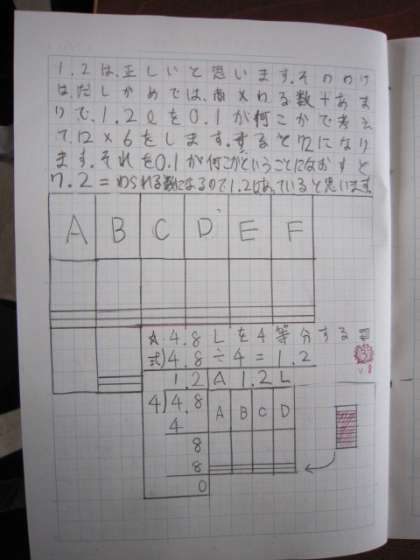 1.2は、正しいと思います。そのわけ
は、たしかめでは、商×わる数+あま
りで、1.2ℓを0.1が何こかで考え
て12×6をします。すると72になり
ます。それを0.1が何こかということになおすと
7.2=わられる数になるので1.2はあっていると思います
A B C D E F
4.8Lを4等分する
式)4.8÷4=1.2
1.2 A 1.2L
4)4.8
4
8
8
0
A B C D